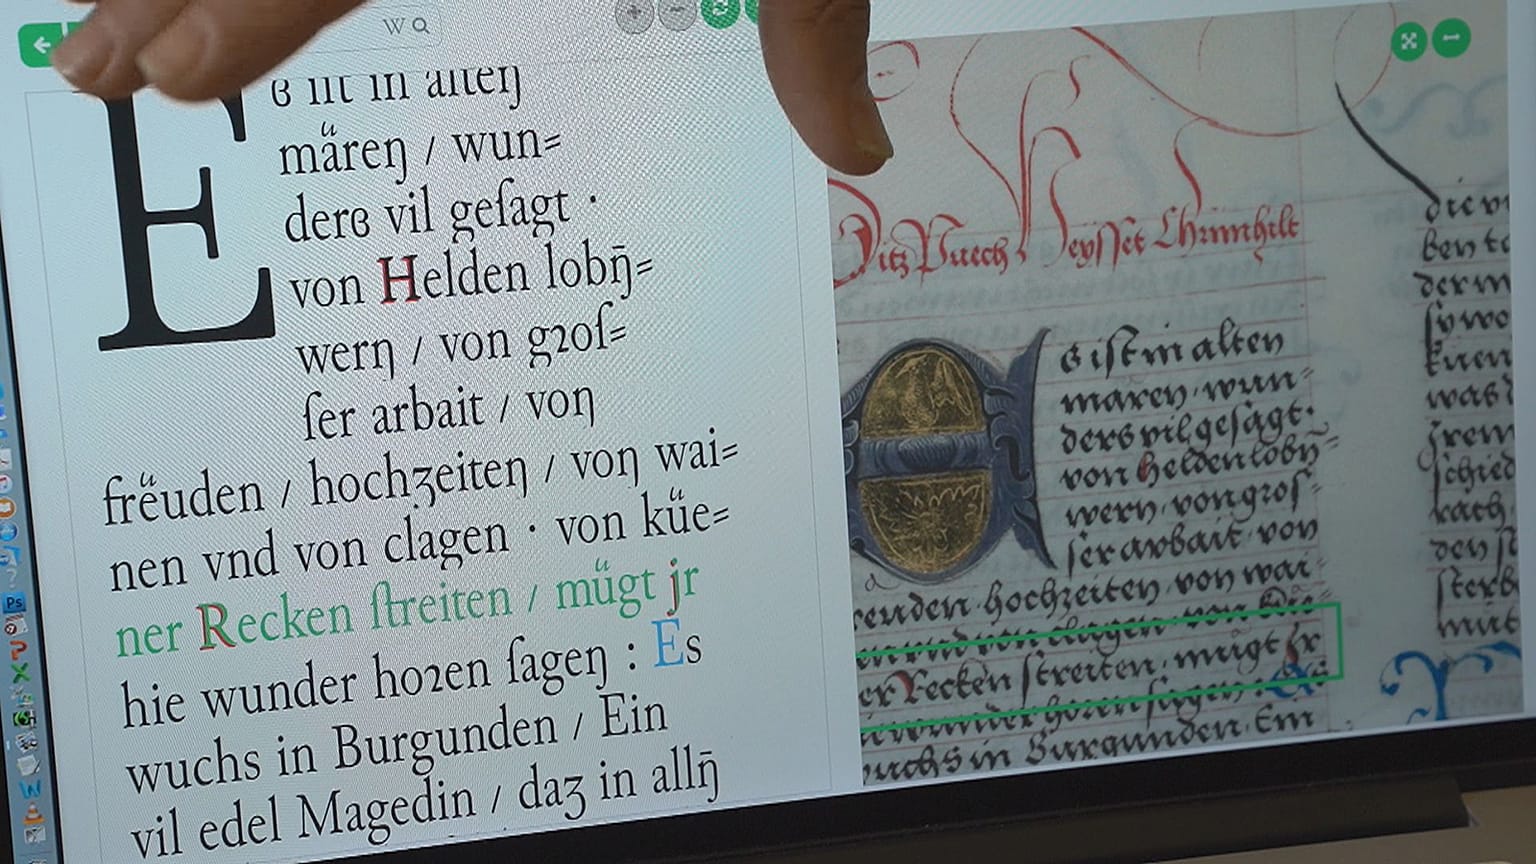 W
Eß iſt in alteŋ
mäꝛeŋ / wun⸗
derß vil geſagt ·
von Helden lobn̄⸗
werŋ / von gꝛoſ⸗
ſer arbait / voŋ
frëuden / hochʒeiteŋ / voŋ wai⸗
nen vnd von clagen · von küe⸗
ner Recken ſtreiten / mügt jr
hie wunder hoꝛen ſageŋ : Es
wuchs in Burgunden / Ein
vil edel Magedin / daʒ in alln̄
Ditz Puech Heysset Chrimhilt
Es iſt in alten
maren / wun⸗
ders vil geſagt ·
von helden lobn̄⸗
wern / von groſ⸗
ſer arbait / von
freuden / hochzeiten / von wai⸗
nen vnd von clagen · von küe⸗
ner Recken ſtreiten / mügt jr
hie wunder horen ſagen : Es
wuchs in Burgunden / Ein
Ps
W